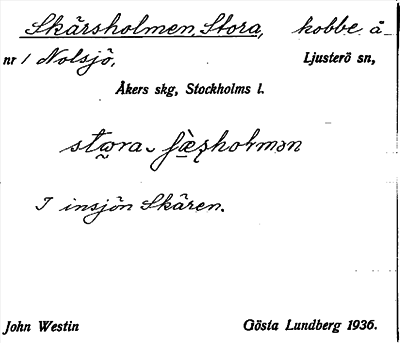 Skärsholmen, Stora, kobbe å
nr 1 Nolsjö, Ljusterö sn,
Åkers skg, Stockholms l.
I insjön Skären.
John Westin Gösta Lundberg 1936.